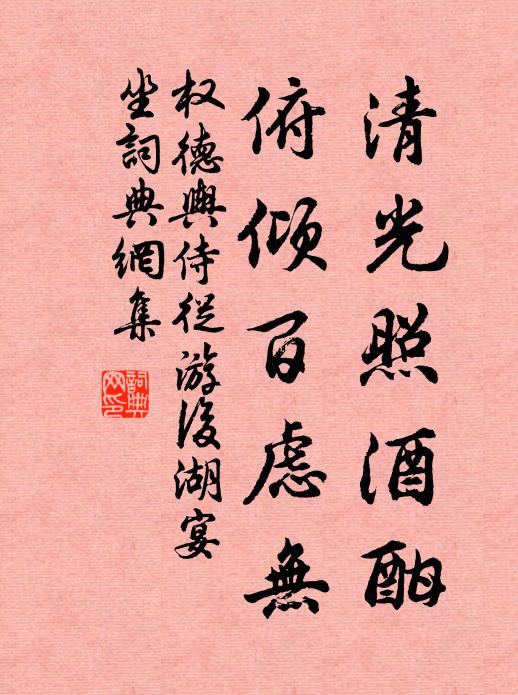 清光照酒酣
俯倾百虑無
权德輿侍從游後湖宴
坐詞典網集
詞典
网印